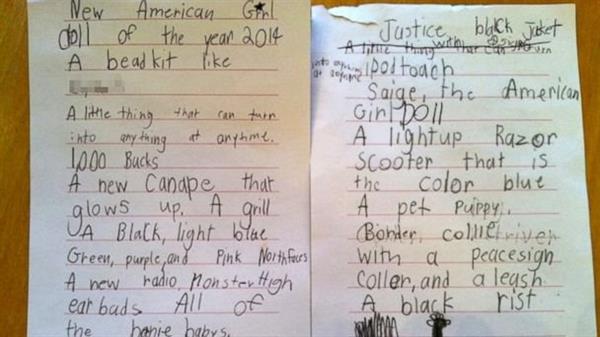 New American Girl
doll of the year 2014
A bead kit like
A little thing that can turn
into anything at anytime.
1,000 Bucks
A new Canape that
glows up, A grill
A Black, light blue
Green, purple, and Pink Northfaces
A new radio, Monster High
ear bads. All of
the banie babys.
Justice black Jaket
A little thing that can turn
into anything at anytime
with
ipod toach
Saige, the American
Girl DOll
A lightup Razor
Scooter that is
the color blue
A pet puippy,
Border, collie
with a peacesign
Coller, and a leash
A black rist